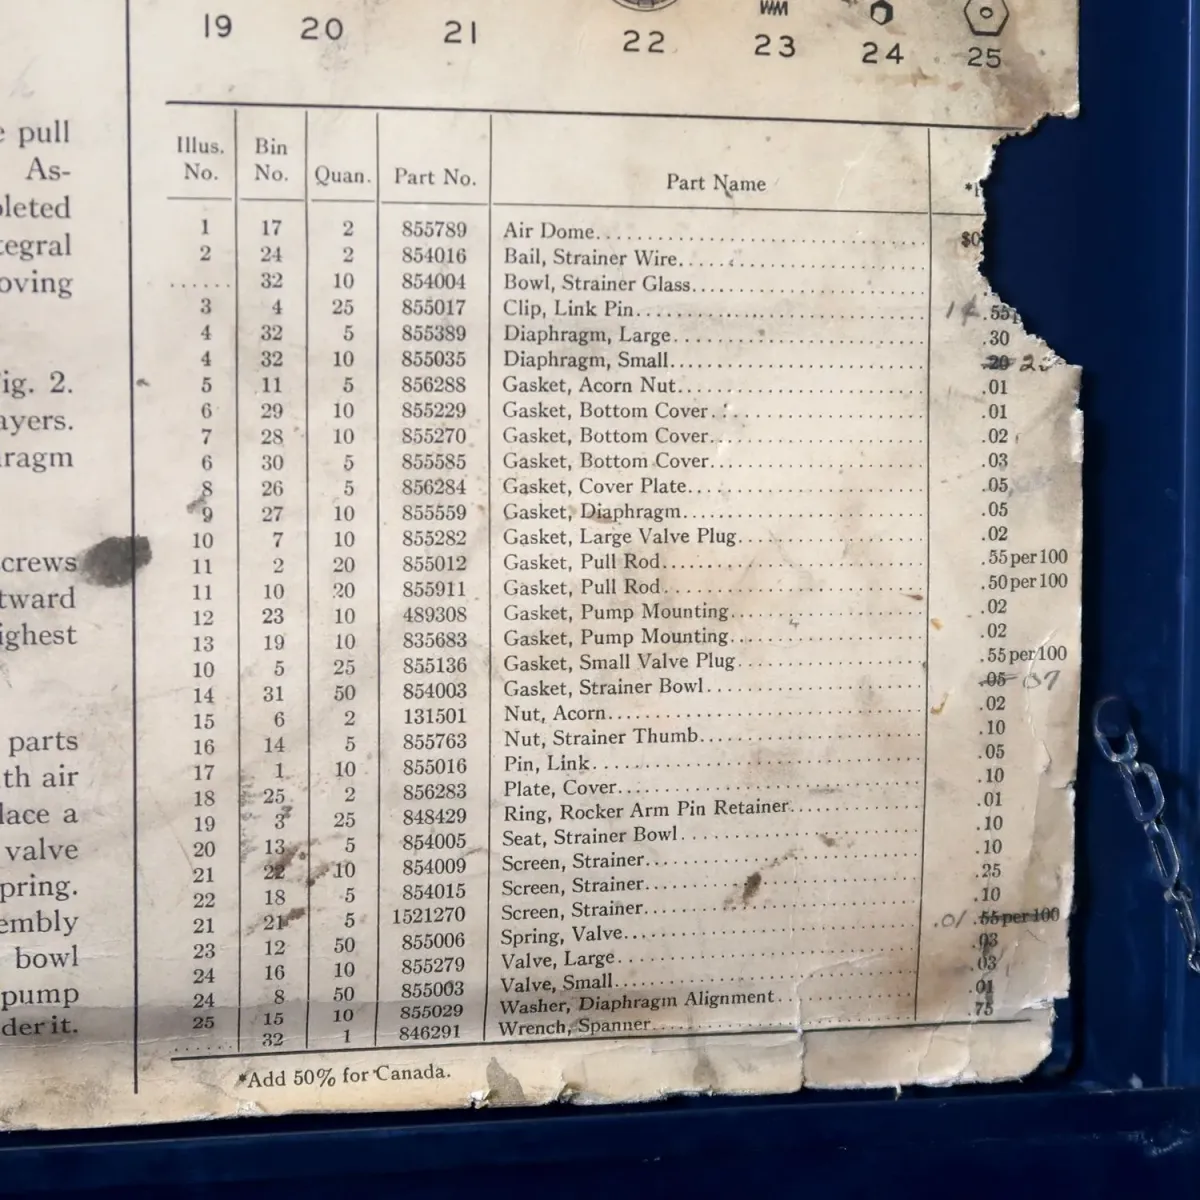 19 20 21 22 23 24 25
e pull
As-
pleted
tegral
oving
Fig. 2.
ayers.
hragm
screws
tward
ighest
parts
ith air
place a
valve
spring.
embly
bowl
pump
der it.
Illus. No. Bin No. Quan. Part No. Part Name
1 17 2 855789 Air Dome $0
2 24 2 854016 Bail, Strainer Wire
...... 32 10 854004 Bowl, Strainer Glass
3 4 25 855017 Clip, Link Pin 1¢ .55
4 32 5 855389 Diaphragm, Large .30
4 32 10 855035 Diaphragm, Small .20
5 11 5 856288 Gasket, Acorn Nut .01
6 29 10 855229 Gasket, Bottom Cover .01
7 28 10 855270 Gasket, Bottom Cover .02
6 30 5 855585 Gasket, Bottom Cover .03
8 26 5 856284 Gasket, Cover Plate .05
9 27 10 855559 Gasket, Diaphragm .05
10 7 10 855282 Gasket, Large Valve Plug .02
11 2 20 855012 Gasket, Pull Rod .55 per 100
11 10 20 855911 Gasket, Pull Rod .50 per 100
12 23 10 489308 Gasket, Pump Mounting .02
13 19 10 835683 Gasket, Pump Mounting .02
10 5 25 855136 Gasket, Small Valve Plug .55 per 100
14 31 50 854003 Gasket, Strainer Bowl .05 07
15 6 2 131501 Nut, Acorn .02
16 14 5 855763 Nut, Strainer Thumb .10
17 1 10 855016 Pin, Link .05
18 25 2 856283 Plate, Cover .10
19 3 25 848429 Ring, Rocker Arm Pin Retainer .01
20 13 5 854005 Seat, Strainer Bowl .10
21 22 10 854009 Screen, Strainer .10
22 18 5 854015 Screen, Strainer .25
21 21 5 1521270 Screen, Strainer .10
23 12 50 855006 Spring, Valve .01 .55 per 100
24 16 10 855279 Valve, Large .03
24 8 50 855003 Valve, Small .03
25 15 10 855029 Washer, Diaphragm Alignment .01
...... 32 1 846291 Wrench, Spanner .75
*Add 50% for Canada.